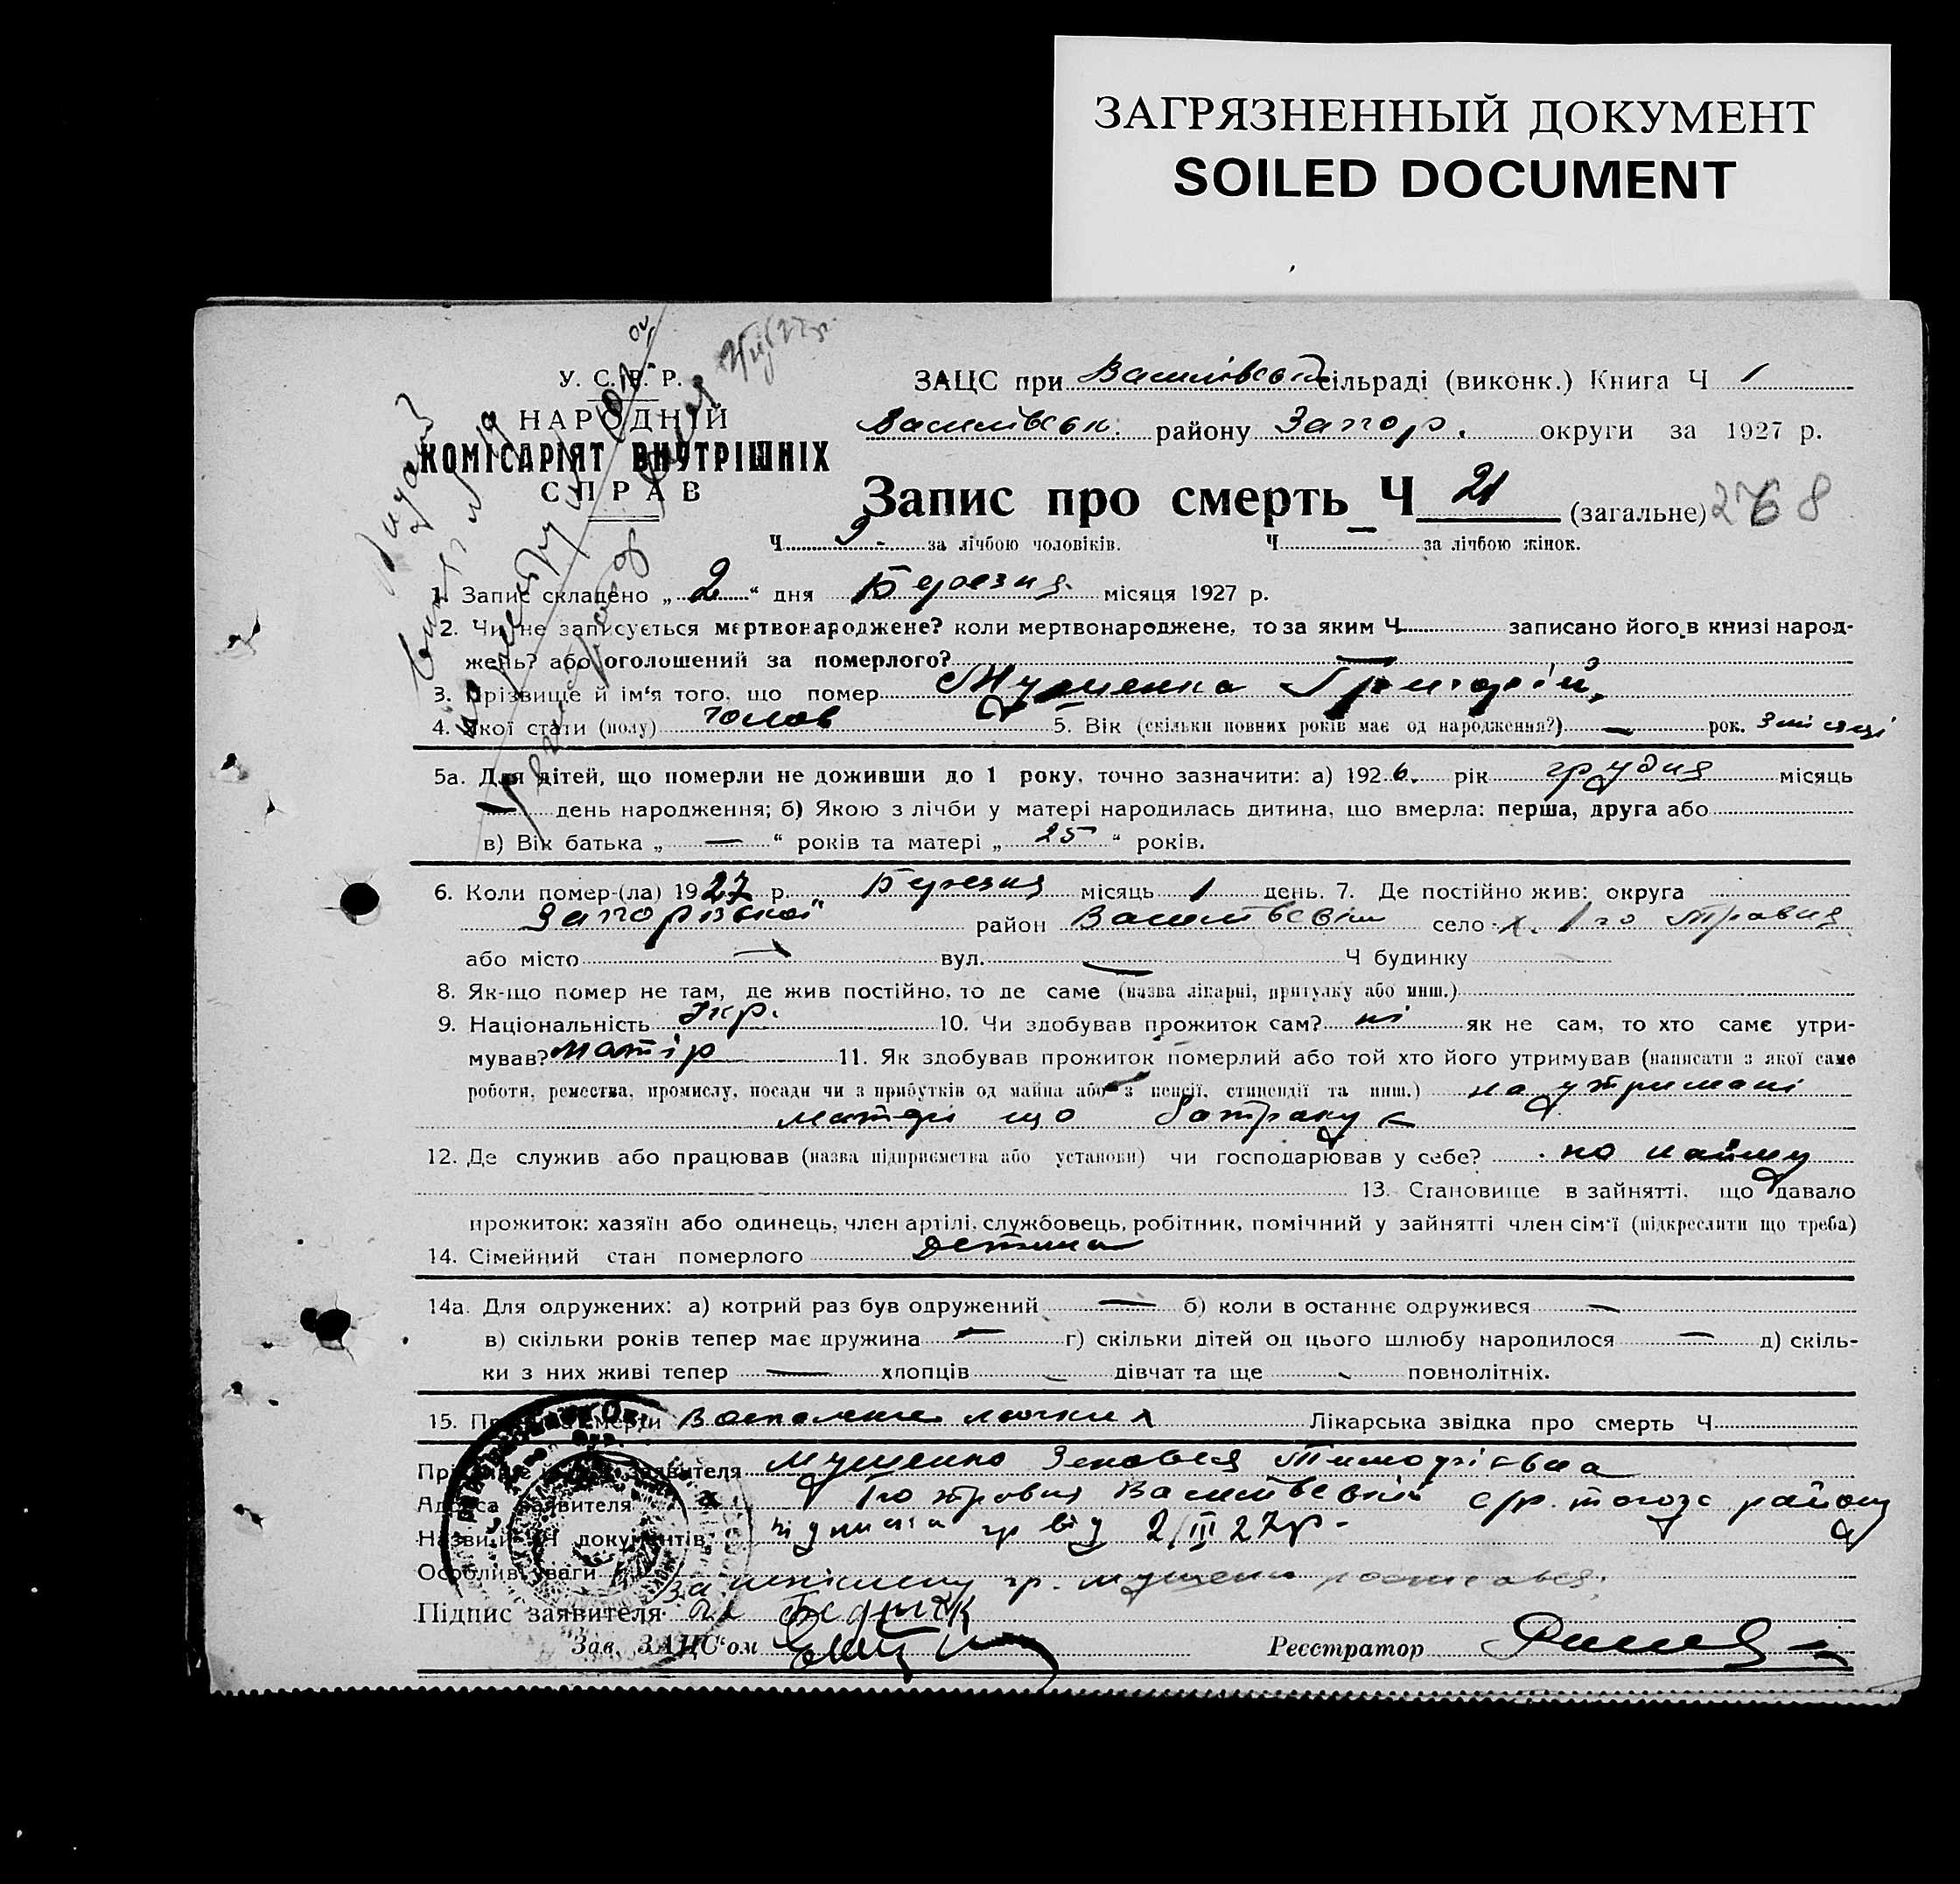 ЗАГРЯЗНЕННЫЙ ДОКУМЕНТ
SOILED DOCUMENT
У. С. Р. Р.
НАРОДНІЙ
КОМІСАРІЯТ ВНУТРІШНІХ
СПРАВ
ЗАЦС при Василівській сільраді (виконк.) Книга Ч 1
Василівськ. району Запор. округи за 1927 р.
Запис про смерть Ч 21 (загальне) 268
Ч 9 за лічбою чоловіків. Ч — за лічбою жінок.
1. Запис складено „ 2 “ дня Березня місяця 1927 р.
2. Чи не записується мертвонароджене? коли мертвонароджене, то за яким Ч. записано його в книзі народ-
жень? або оголошений за померлого? —
3. Прізвище й ім‘я того, що помер Мушенко Григорій
4. Якої стати (полу) чолов 5. Вік (скільки повних років має од народження?) — рок. 3 місяці
5а. Для дітей, що померли не доживши до 1 року, точно зазначити: а) 1926. рік грудня місяць
— день народження; б) Якою з лічби у матері народилась дитина, що вмерла: перша, друга або
в) Вік батька „ — “ років та матері „ 25 “ років.
6. Коли помер-(ла) 1927 р. Березня місяць 1 день. 7. Де постійно жив: округа
Запорізької район Василівський село х. 1го Травня
або місто — вул. — Ч будинку
8. Як-що помер не там, де жив постійно, то де саме (назва лікарні, притулку або инш.)
9. Національність Укр. 10. Чи здобував прожиток сам? ні як не сам, то хто саме утри-
мував? матір 11. Як здобував прожиток померлий або той хто його утримував (написати з якої саме
роботи, ремества, промислу, посади чи з прибутків од майна або з пенсії, стипендії та инш.) на утримані
матері що батракує
12. Де служив або працював (назва підприємства або установи) чи господарював у себе? по найму
13. Становище в зайнятті, що давало
прожиток: хазяїн або одинець, член артілі, службовець, робітник, помічний у зайнятті член сім‘ї (підкреслити що треба)
14. Сімейний стан померлого Детина
14а. Для одружених: а) котрий раз був одружений — б) коли в останнє одружився —
в) скільки років тепер має дружина — г) скільки дітей од цього шлюбу народилося — д) скіль-
ки з них живі тепер — хлопців — дівчат та ще — повнолітніх.
15. Причина смерти Воспаление Лікарська звідка про смерть Ч
Прізвище й ім‘я заявителя Мушенко Тимофіївна
Адреса заявителя х 1го травня Василівський с/р. того ж району
Назви й ЧЧ документів підписка гр від 2/III 27р.
Особливі уваги За неписьмену гр. Мушенко
Підпис заявителя
Зав. ЗАЦС‘ом
Реєстратор